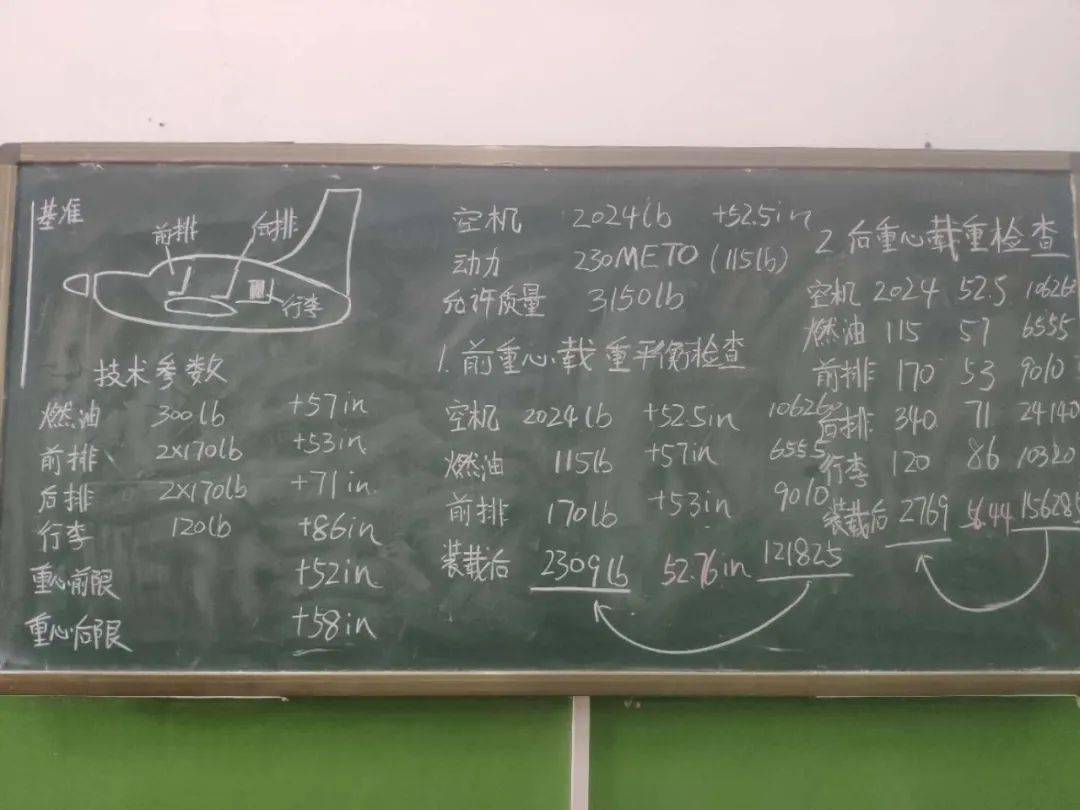 基准
前排 后排
行李
技术参数
燃油 300lb +57in
前排 2×170lb +53in
后排 2×170lb +71in
行李 120lb +86in
重心前限 +52in
重心后限 +58in
空机 2024lb +52.5in
动力 230METO (115lb)
允许质量 3150lb
1.前重心载重平衡检查
空机 2024lb +52.5in 10626
燃油 115lb +57in 6555
前排 170lb +53in 9010
装载后 2309lb 52.76in 121825
2.后重心载重检查
空机 2024 52.5 10626
燃油 115 57 6555
前排 170 53 9010
后排 340 71 24140
行李 120 86 10320
装载后 2769 56.44 156285